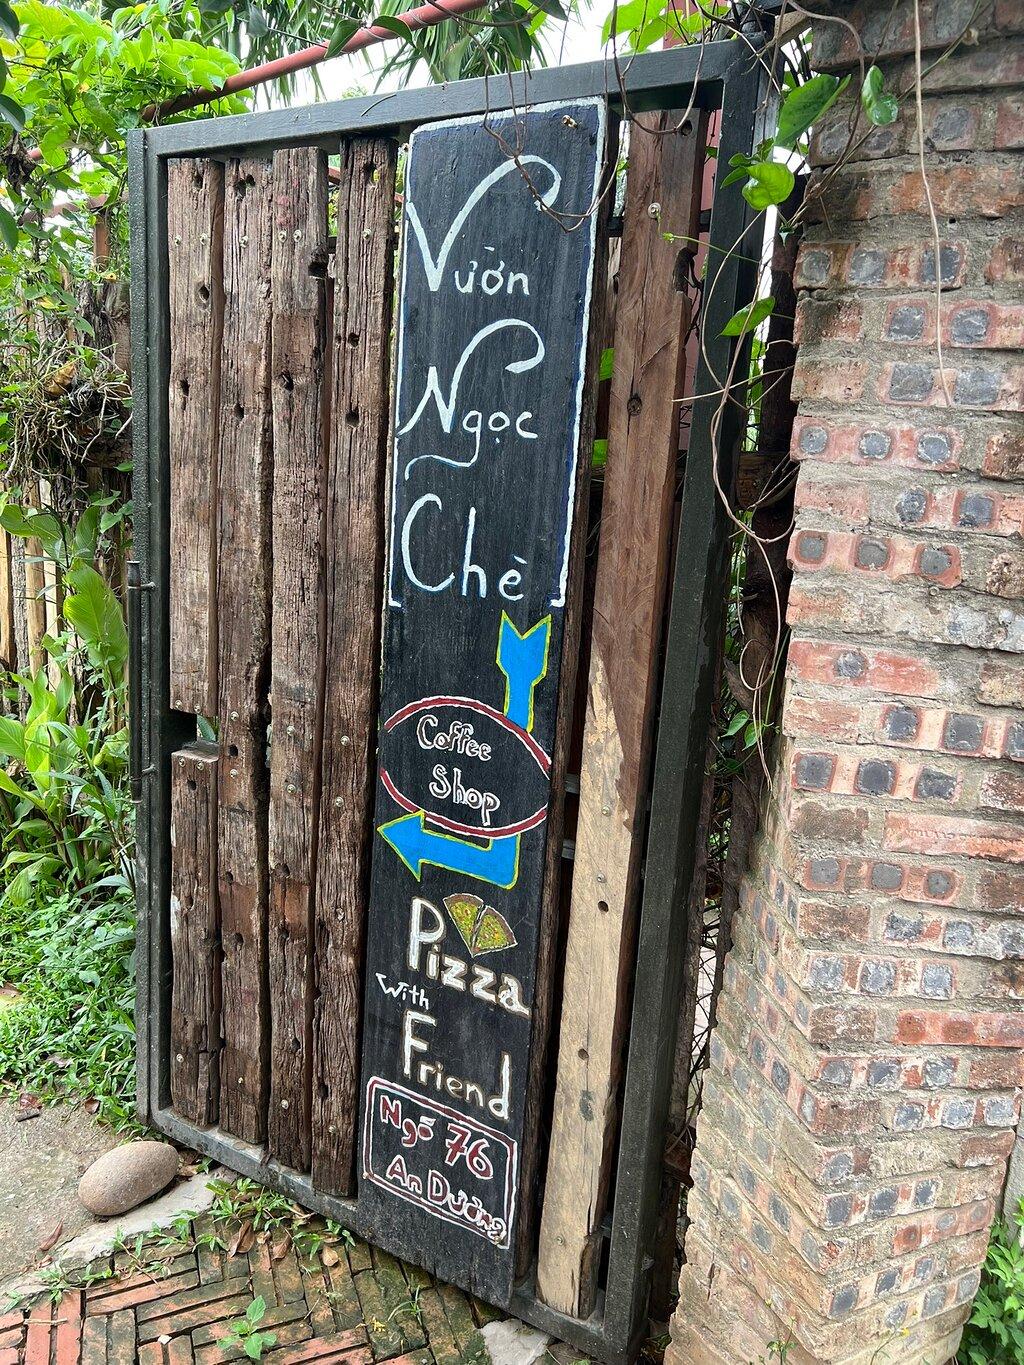 Vườn
Ngọc
Chè
Coffee
Shop
Pizza
With
Friend
Ngõ 76
An Dương